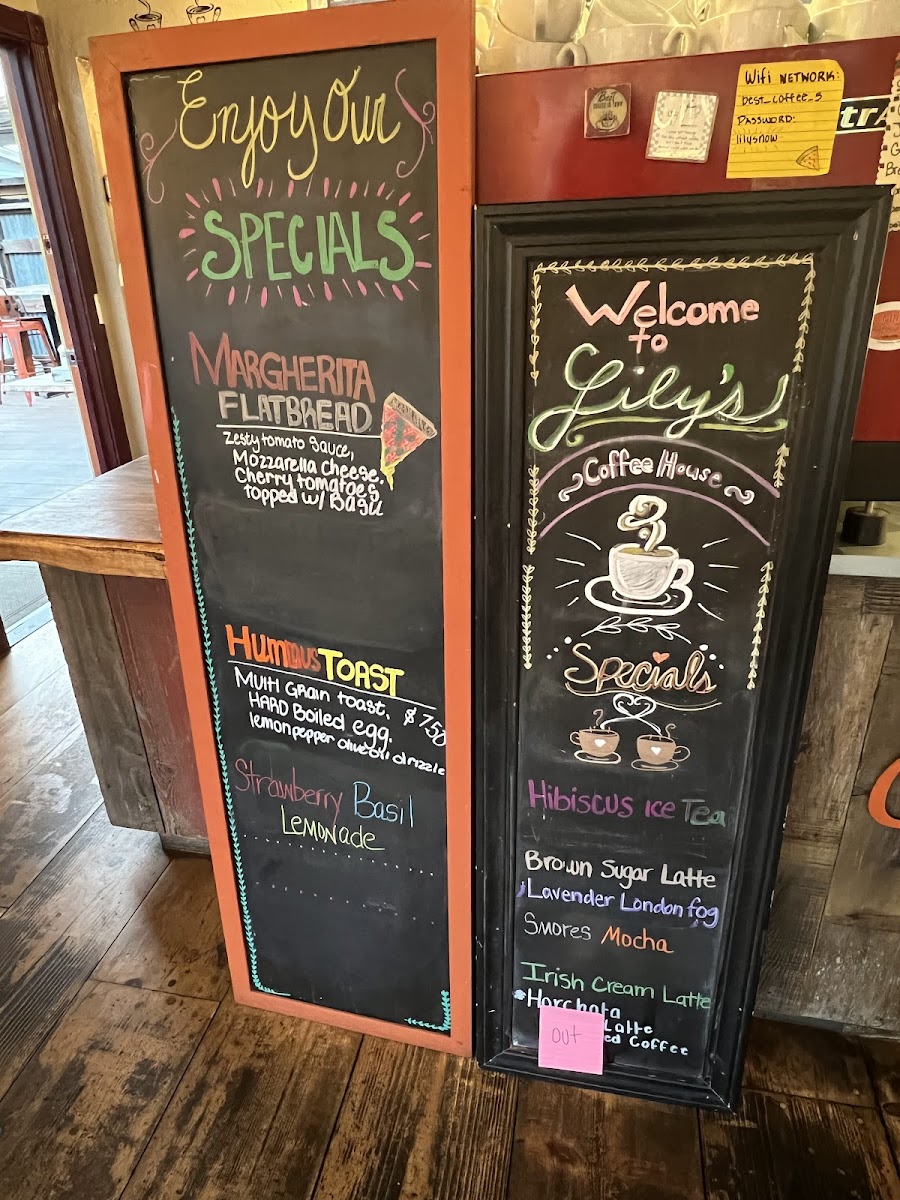 Enjoy Our
SPECIALS
MARGHERITA
FLATBREAD
Zesty tomato sauce,
Mozzarella cheese,
Cherry tomatoes,
topped w/ Basil
Hummus TOAST
Multi Grain toast, $7.50
HARD Boiled egg,
lemon pepper olive oil drizzle
Strawberry Basil
Lemonade
Wifi NETWORK:
best_coffee_5
PASSWORD:
lilysnow
Welcome
to
Lily's
Coffee House
Specials
Hibiscus ice Tea
Brown Sugar Latte
Lavender London fog
Smores Mocha
Irish Cream Latte
Horchata
Latte
Coffee
out